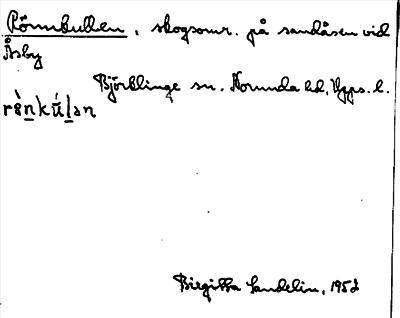 Rönnkullen, skogsomr. på sandåsen vid
Åsby
Björklinge sn. Norunda hd, Upps. l.
rènkúlan
Birgitta Sundelin, 1952